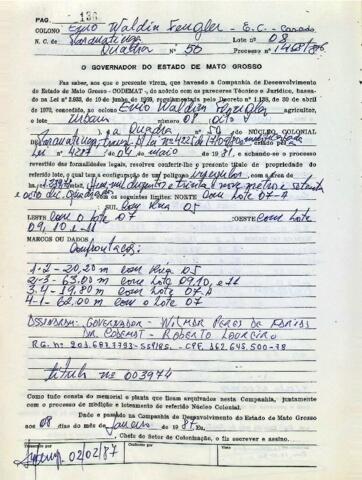 PAG. 136
COLONO Enio Waldir Fengler - E.C. Casado
N. C. de Paranatinga Lote nº 08
Quadra Nº 50 Processo nº 1468/86
O GOVERNADOR DO ESTADO DE MATO GROSSO
Faz saber, aos que a presente virem, que havendo a Companhia de Desenvolvimento
do Estado de Mato Grosso - CODEMAT -, de acordo com os pareceres Técnico e Jurídico, basea-
do na Lei nº 2.933, de 19 de junho de 1969, regulamentada pelo Decreto nº 1.138, de 30 de abril
de 1970, concedido, ao colono Enio Waldir Fengler, agricultor,
o lote urbano nº 08
Quadra nº 50 do NÚCLEO COLONIAL
Paranatinga criado p/
Lei nº de 04 de maio de 1981, e achando-se o processo
revestido das formalidades legais, resolve conferir-lhe o presente título de propriedade do
referido lote, o qual tem a configuração de um polígono irregular com a área de
Hum mil duzentos e trinta e nove metros e setenta
e oito dm. Quadrados com os seguintes limites: NORTE Com Lote 07-A
SUL Com Rua 05
LESTE Com o Lote 07 OESTE Com Lote
09, 10 e 11
MARCOS OU DADOS
Confrontação:
1-2 - 20,20 m com Rua 05
2-3 - 63,00 m com Lote 09, 10, e 11
3-4 - 19,80 m com Lote 07-A
4-1 - 62,00 m com o Lote 07
Assinaram: GOVERNADOR - WILMAR PERES DE FARIAS
DR. CODEMAT - ROBERTO LOUREIRO
CPF. 162.645.500-78
Título nº 003974
Como tudo consta do memorial e planta que ficam arquivados nesta Companhia, juntamente
com o processo de medição e loteamento do referido Núcleo Colonial.
Dado e passado na Companhia de Desenvolvimento do Estado de Mato Grosso
aos 08 dias do mês de Janeiro de 1987. Eu,
Chefe do Setor de Colonização, o fiz escrever e assino.
02/02/87